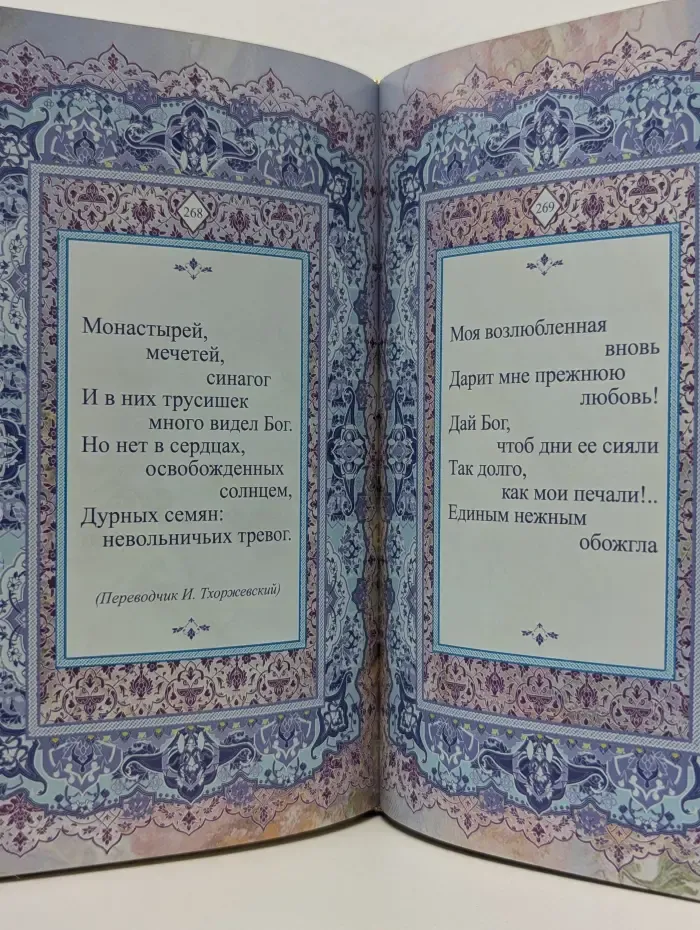 268
Монастырей,
мечетей,
синагог
И в них трусишек
много видел Бог.
Но нет в сердцах,
освобожденных
солнцем,
Дурных семян:
невольничьих тревог.
(Переводчик И. Тхоржевский)
269
Моя возлюбленная
вновь
Дарит мне прежнюю
любовь!
Дай Бог,
чтоб дни ее сияли
Так долго,
как мои печали!..
Единым нежным
обожгла